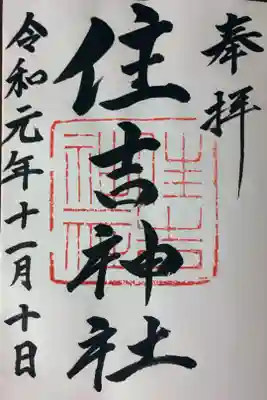 奉拝
住吉神社
令和元年十一月十日
住吉神社